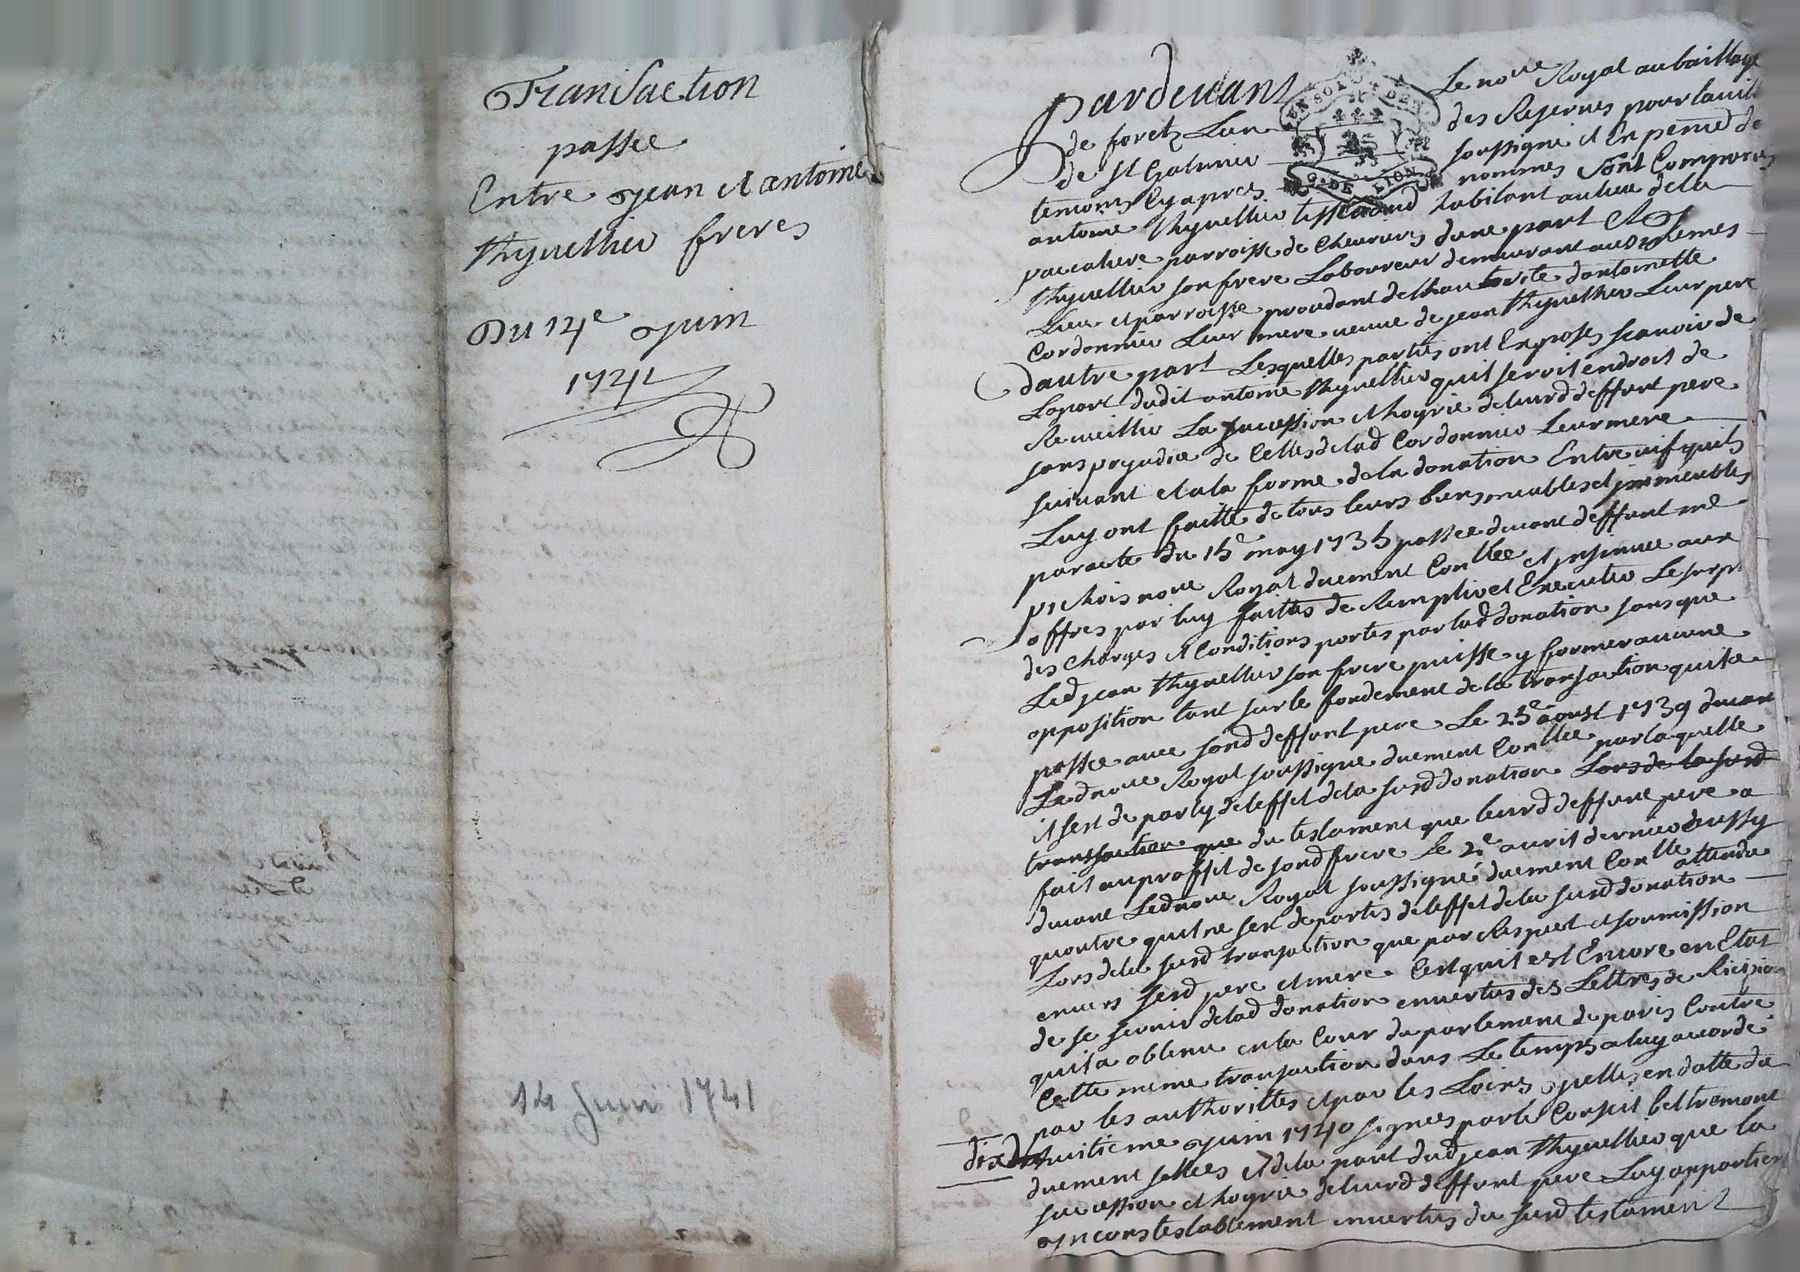 Transaction
passée
Entre jean et antoine
thyuellier freres
Du 14e juin
1741
14 Juin 1741
Pardevant Le nore Royal au bailliage
de foretz Lun des Reservés pour la ville
de St Galmier soussigné et En presence de
temoins Cy apres nommés Sont Comparus
antoine thyuellier tisserand habitant au lieu de la
parroisse de Chevrieres dune part Et Jean
thyuellier son frere Laboureur demeurant au memes
Lieu et parroisse procedant de lhauthorité dantoinette
Cordonnier Leur mere veuve de jean thyuellier Leur pere
dautre part Lesquelles parties ont Exposés scavoir de
Lapart dudit antoine thyuellier quil seroit endroit de
Recueillir La succession et hoyrie de leurd deffunt pere
sans prejudice de Celles de lad Cordonnier Leur mere
suivant et a la forme de la donation Entre vifs quils
Luy ont faitte de tous leurs biens meubles et immeubles
par acte du 15e may 1735 passée devant deffunt me
pichois nore Royal duement Conllée et insinuée aux
offres par luy faittes de Remplir et Executer Le surplus
des Charges et Conditions portés par lad donation sans que
Led jean thyuellier son frere puisse y former aucune
opposition tant sur le fondement de la transaction quil a
passée avec sond deffunt pere Le 25e aoust 1739 devant
Led nore Royal soussigné duement Conllée par laquelle
il sest de party de leffet de la susd donation Lors de la susd
transaction que du testament que leurd deffunt pere a
fait au proffit de sond frere Le 2e avril dernier aussy
devant Led nore Royal soussigné duement Conllé attendu
quontre quil ne sest departis de leffet de la susd donation
Lors de la susd transaction que par Respect et soumission
envers sesd pere et mere Cest quil est Encore en Etat
de se servir de lad donation en vertus des Lettres de Ricision
quil a obtenu en la Cour du parlement de paris Contre
Cette meme transaction dans Le temps a luy accordé
par les authorittés et par les Loix jcelles en datte du
dix huitieme juin 1740 signées par le Conseil beltremont
duement sellées et de la part dud jean thyuellier que la
succession et hoyrie de leurd deffunt pere Luy appartient
jncontestablement en vertus du susd testament
EN SOL DEN
G. DE LION